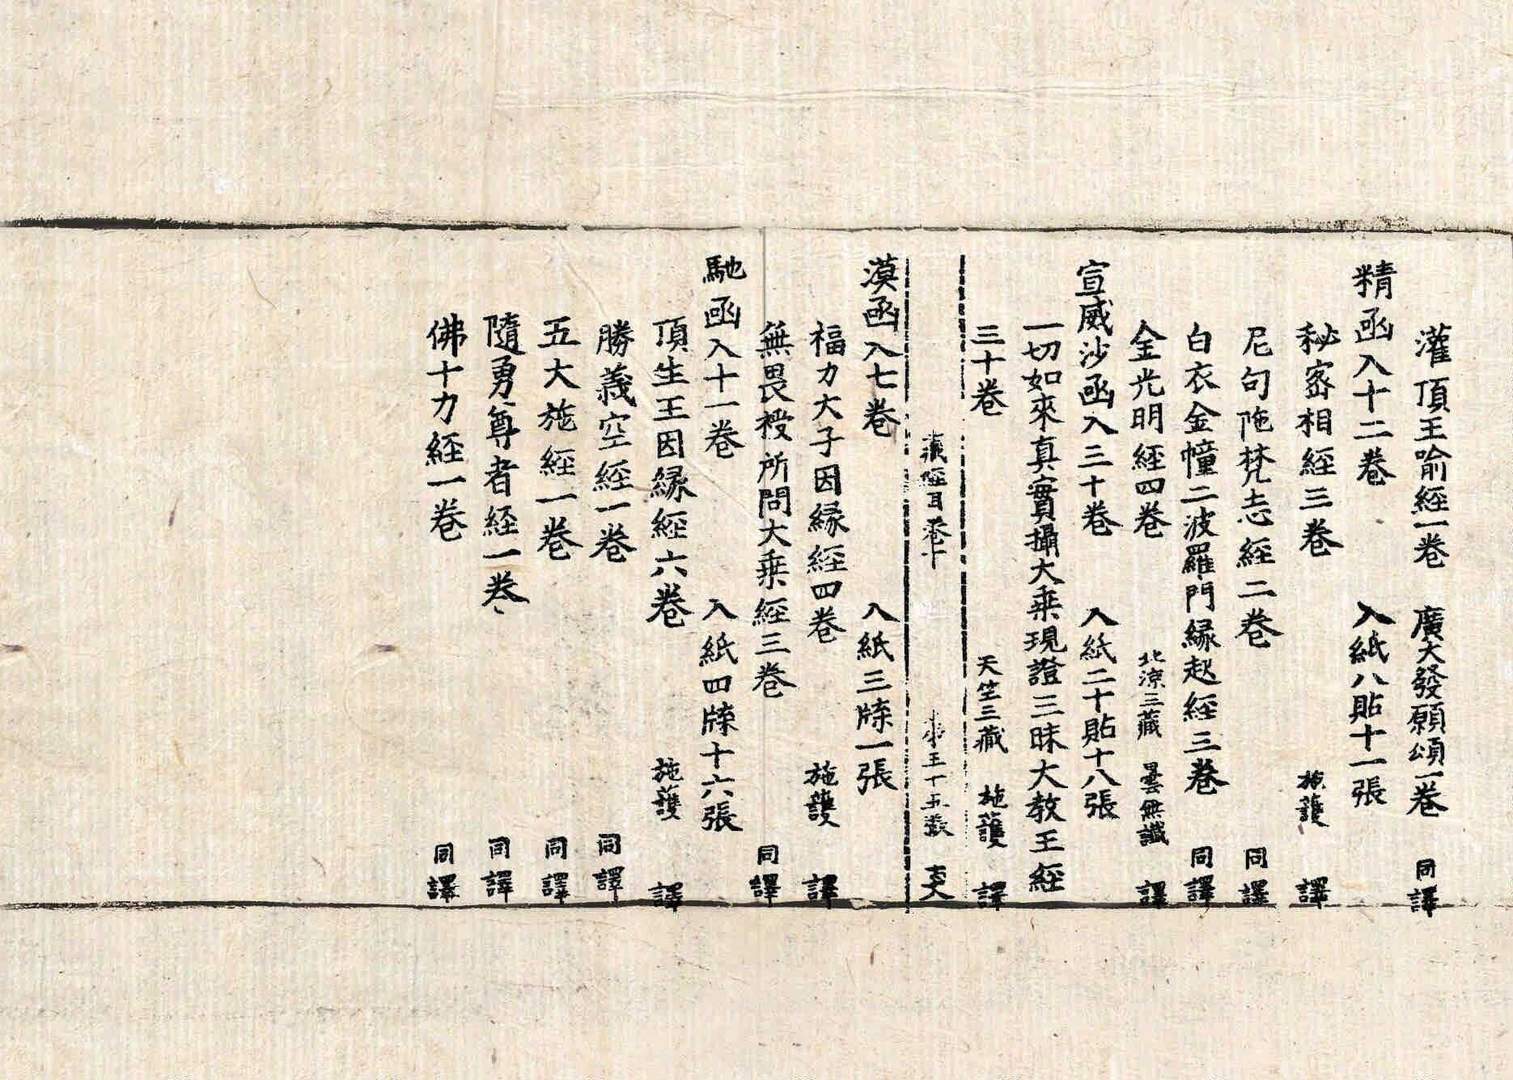 灌頂王喻經一卷 廣大發願頌一卷 同譯
精函入十二卷 入紙八貼十一張
秘密相經三卷 施護 譯
尼句陁梵志經二卷 同譯
白衣金幢二波羅門縁起經三卷 同譯
金光明經四卷 北涼三藏 曇無讖 譯
宣威沙函入三十卷 入紙二十貼十八張
一切如來真實攝大乗現證三昧大教王經
三十卷 天竺三藏 施護 譯
藏經目卷 第五十五
漠函入七卷 入紙三牒一張
福力大子因縁經四卷 施護 譯
無畏授所問大乗經三卷 同譯
馳函入十一卷 入紙四牒十六張
頂生王因縁經六卷 施護 譯
勝義空經一卷 同譯
五大施經一卷 同譯
隨勇尊者経一卷 同譯
佛十力經一卷 同譯